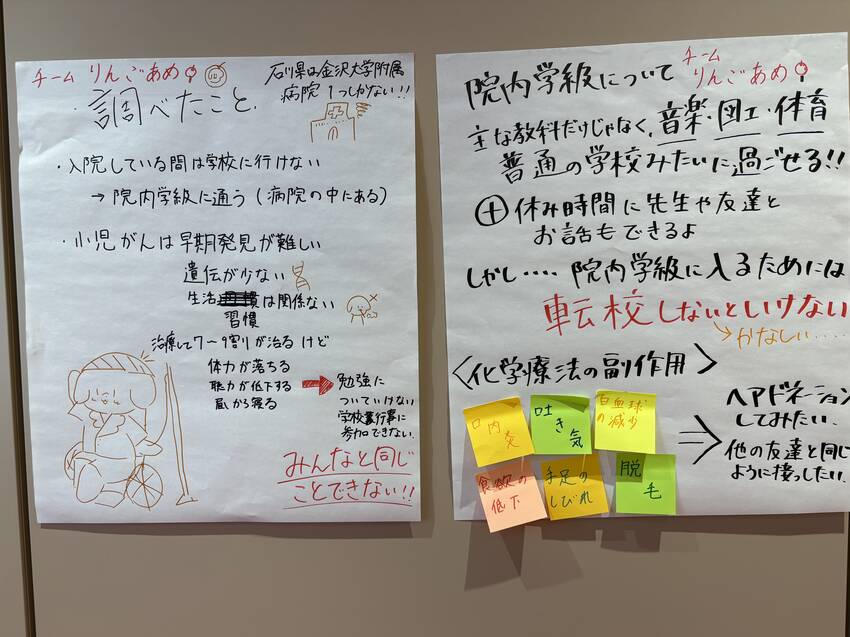 チーム りんごあめ
石川県は金沢大学附属
病院 1つしかない!!
・調べたこと.
・入院している間は学校に行けない
→ 院内学級に通う (病院の中にある)
・小児がんは早期発見が難しい
遺伝が少ない
生活 は関係ない
習慣
治療して7～9割りが治るけど
体力が落ちる
聴力が低下する
昼から寝る
→ 勉強に
ついていけない
学校行事に
参加できない.
みんなと同じ
ことできない!!
院内学級について
チーム
りんごあめ
主な教科だけじゃなく、音楽・図工・体育
普通の学校みたいに過ごせる!!
⊕ 休み時間に先生や友達と
お話もできるよ
しかし‥‥ 院内学級に入るためには
転校しないといけない
→かなしい‥‥
〈化学療法の副作用〉
口内炎
吐き気
白血球の減少
食欲の低下
手足のしびれ
脱毛
⇒ ヘアドネーション
してみたい.
他の友達と同じ
ように接したい.